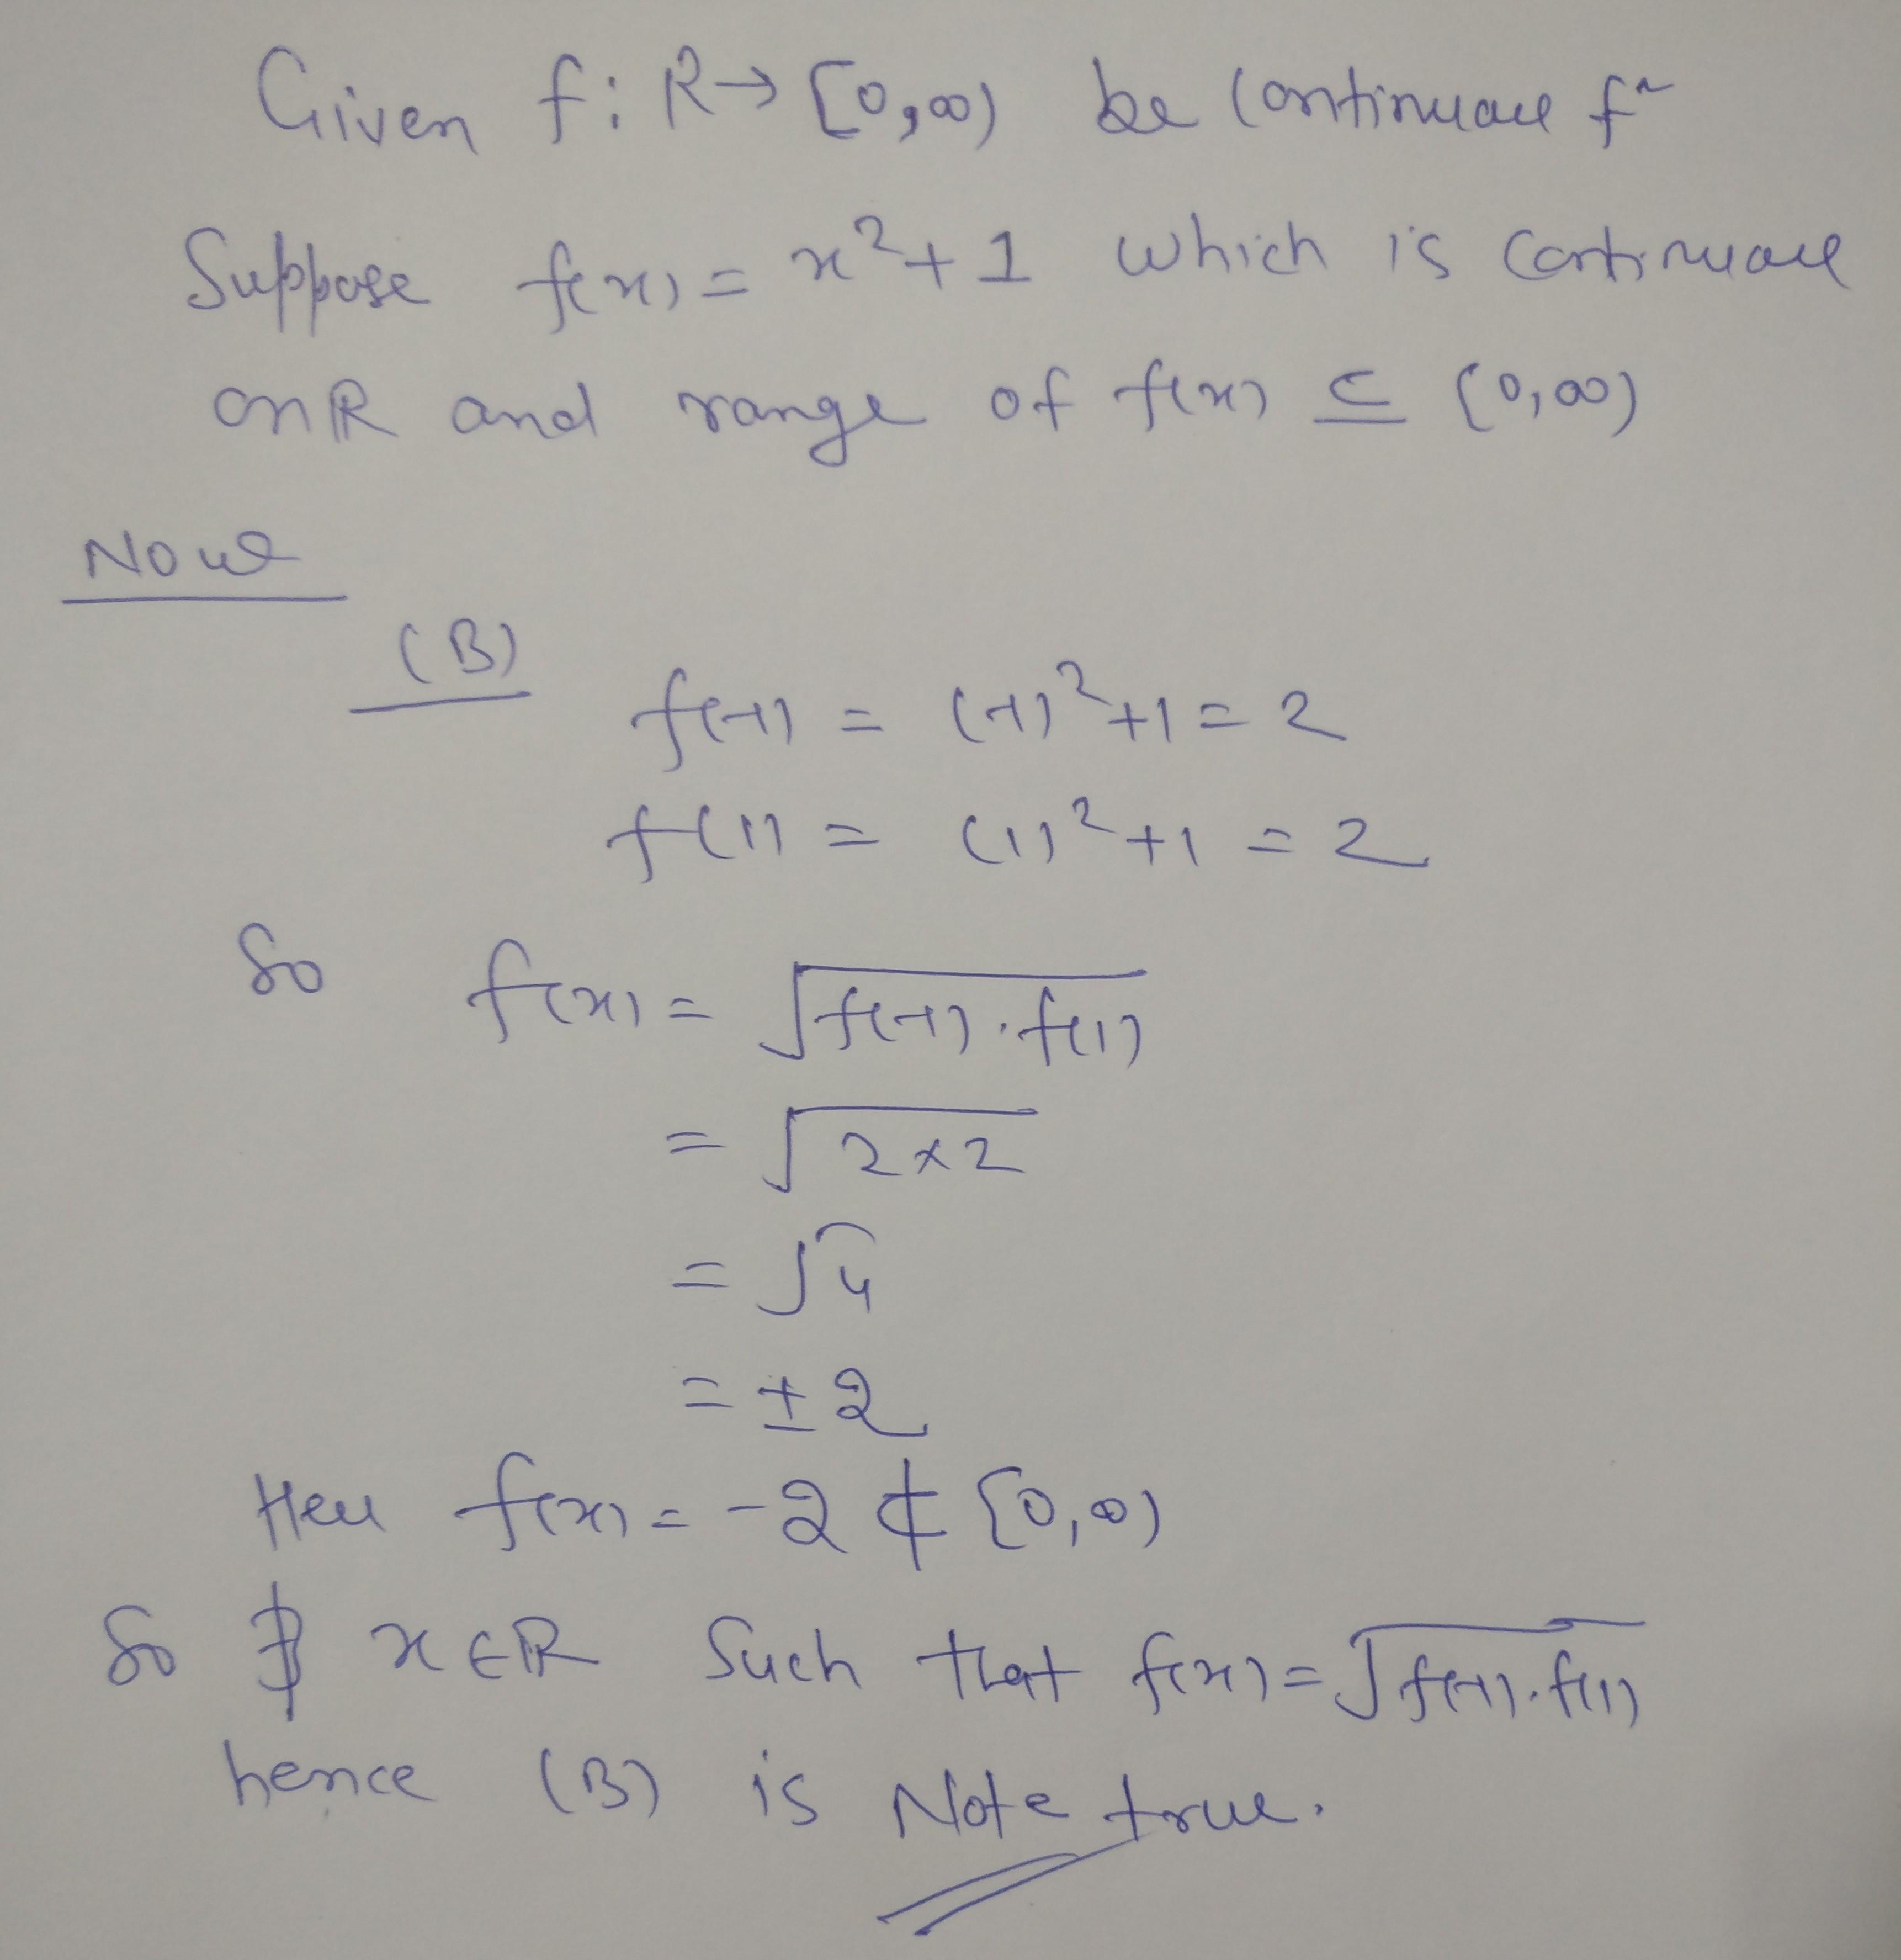 Given f: R→ [0,∞) be continuous fⁿ
Suppose f(x) = x²+1 which is continuous
on R and range of f(x) ⊆ [0,∞)
Now
(B)
f(-1) = (-1)²+1 = 2
f(1) = (1)²+1 = 2
So f(x) = √f(-1).f(1)
= √2×2
= √4
= ±2
Here f(x) = -2 ∉ [0,∞)
So ∄ x∈R Such that f(x) = √f(-1).f(1)
hence (B) is Note true.